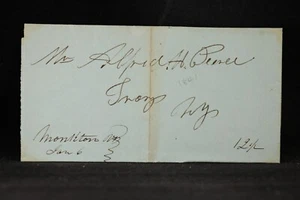 Mr Alfred H. Pierce
Troy
NY
Monkton Vt
Jan 6
12½